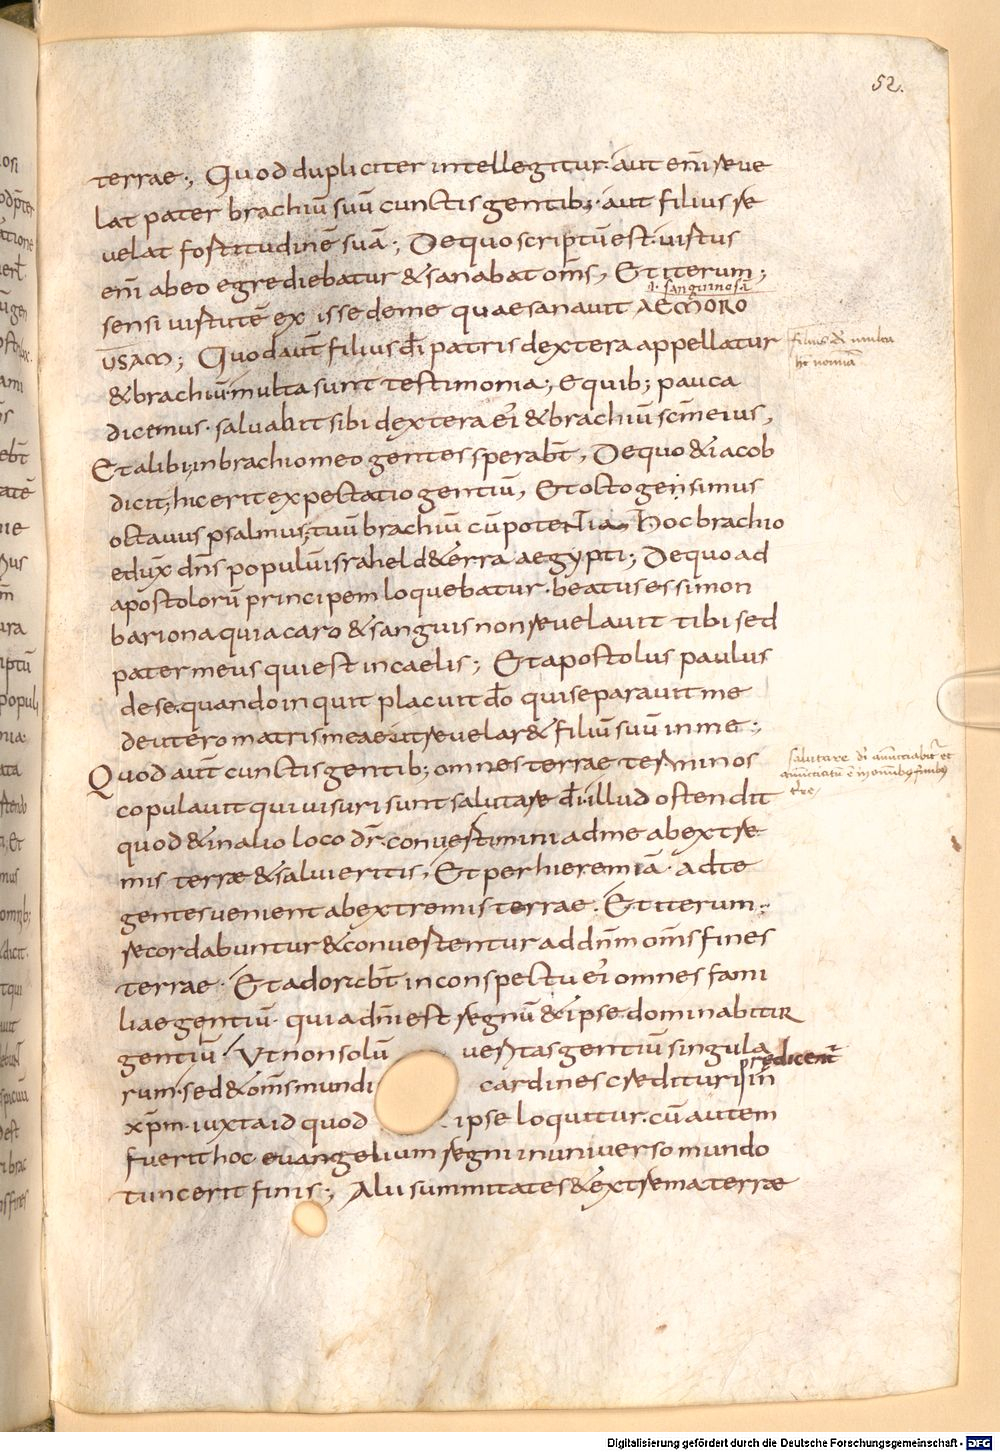 52.
terrae; Quod dupliciter intellegitur. aut eni reve
lat pater brachiū suū cunctis gentib; aut filius re
velat fortitudinē suā; De quo scriptū est. virtus
eni ab eo egrediebatur & sanabat om̄s, Et iterum;
.i. sanguinosā
sensi virtutē ex isse de me quae sanavit AEMORO
USAM; Quod aut filius dī patris dextera appellatur
filius dī
& brachiū multa sunt testimonia; E quib; pauca
dicemus. salvabit sibi dextera ei & brachiū scm eius,
Et alibi; in brachio meo gentes sperabt, De quo & iacob
dicit; hic erit expectatio gentiū, Et octogensimus
octavus psalmus; tuū brachiū cū potentia, Hoc brachio
eduxit dn̄s populū israhel d& erra aegypti; De quo ad
apostolorū principem loquebatur. beatus es simon
bariona quia caro & sanguis non revelavit tibi sed
pater meus qui est in caelis; Et apostolus paulus
de se. quando inquit placuit dō qui separavit me
de utero matris meae ut revelar& filiū suū in me;
Quod aut cunctis gentib; omnes terrae terminos
salutare dī annunciabit et
annunciatū ē in omnibus finibus
tre
copulavit qui visuri sunt salutare dī. illud ostendit
quod & in alio loco dr. convertimini ad me ab extre
mis terrae & salvi eritis, Et per hieremiā. ad te
gentes venient ab extremis terrae. Et iterum;
recordabuntur & convertentur ad dnm om̄s fines
terrae. Et adorabt in conspectu ei omnes fami
liae gentiū. quia dn̄i est regnū & ipse dominabitur
gentiū. Ut non solū veritas gentiū singula
predicent
rum. sed & om̄s mundi cardines creditur in
xp̄m. iuxta id quod ipse loquitur. cū autem
fuerit hoc evangelium regni in universo mundo
tunc erit finis; Alii summitates & extrema terrae
Digitalisierung gefördert durch die Deutsche Forschungsgemeinschaft - DFG